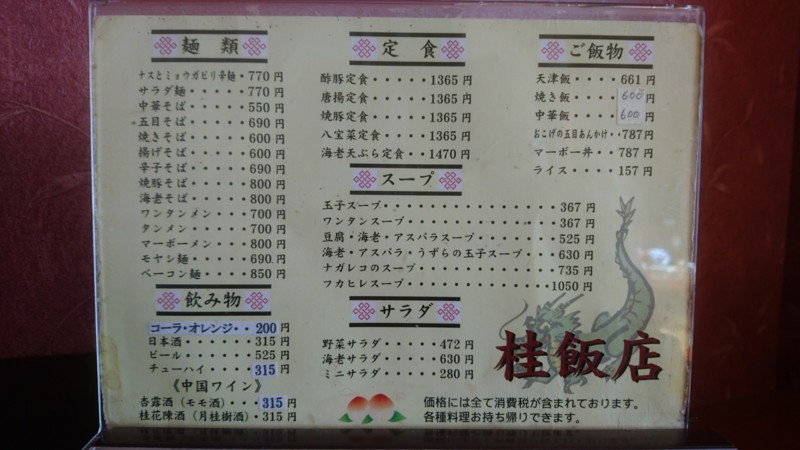 麺類
ナスとミョウガピリ辛麺・770円
サラダ麺・・・・・770円
中華そば・・・・・550円
五目そば・・・・・690円
焼きそば・・・・・600円
揚げそば・・・・・600円
辛子そば・・・・・690円
焼豚そば・・・・・800円
海老そば・・・・・800円
ワンタンメン・・・700円
タンメン・・・・・700円
マーボーメン・・・800円
モヤシ麺・・・・・690円
ベーコン麺・・・・850円
飲み物
コーラ・オレンジ・・200円
日本酒・・・・・・315円
ビール・・・・・・525円
チューハイ・・・・315円
《中国ワイン》
杏露酒（モモ酒）・・・315円
桂花陳酒（月桂樹酒）・315円
定食
酢豚定食・・・・・1365円
唐揚定食・・・・・1365円
焼豚定食・・・・・1365円
八宝菜定食・・・・1365円
海老天ぷら定食・・1470円
スープ
玉子スープ・・・・・・・・・・・・・367円
ワンタンスープ・・・・・・・・・・・367円
豆腐・海老・アスパラスープ・・・・・525円
海老・アスパラ・うずらの玉子スープ・・・630円
ナガレコのスープ・・・・・・・・・・735円
フカヒレスープ・・・・・・・・・・・1050円
サラダ
野菜サラダ・・・・・472円
海老サラダ・・・・・630円
ミニサラダ・・・・・280円
ご飯物
天津飯・・・・661円
焼き飯・・・・600円
中華飯・・・・600円
おこげの五目あんかけ・・787円
マーボー丼・・787円
ライス・・・・157円
桂飯店
価格には全て消費税が含まれております。
各種料理お持ち帰りできます。